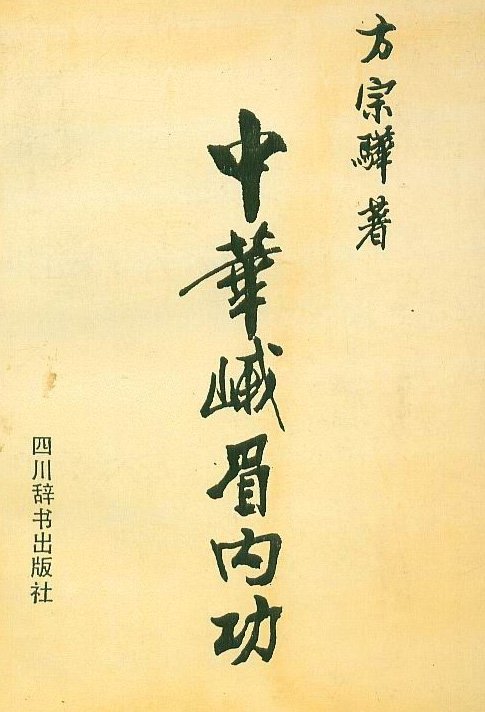 方宗驊著
中華峨眉内功
四川辞书出版社